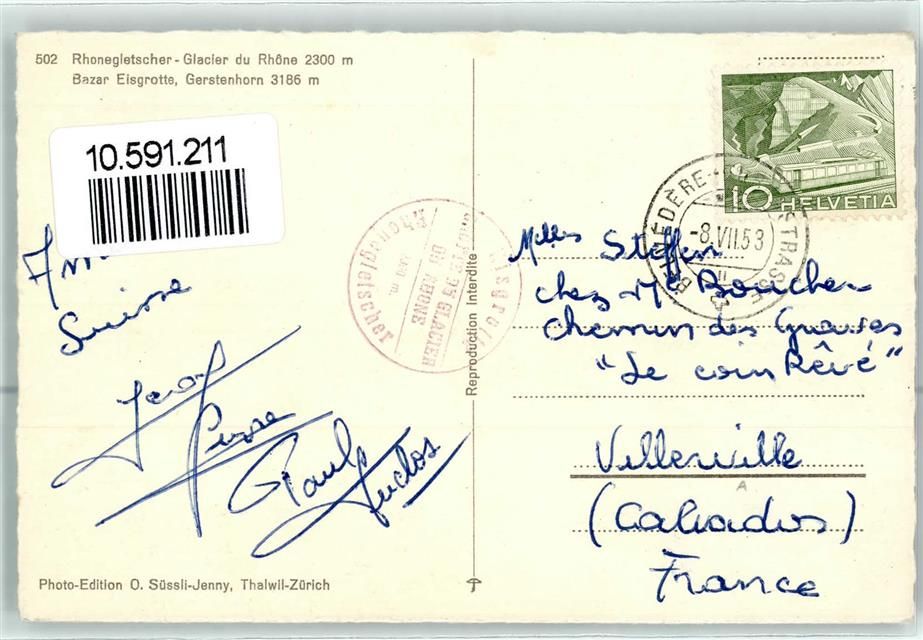 502 Rhonegletscher - Glacier du Rhône 2300 m
Bazar Eisgrotte, Gerstenhorn 3186 m
10.591.211
Suisse
Jean
Pierre
Paul
Duclos
Rhonegletscher
DU GLACIER
DU RHONE
Reproduction Interdite
10 HELVETIA
BELVÉDÈRE
STRASSE
-8.VII.53
Melles Steffen
chez Me Boucher
chemin des Graves
"Le coin Rêvé"
Villerville
(Calvados)
France
Photo-Edition O. Süssli-Jenny, Thalwil-Zürich